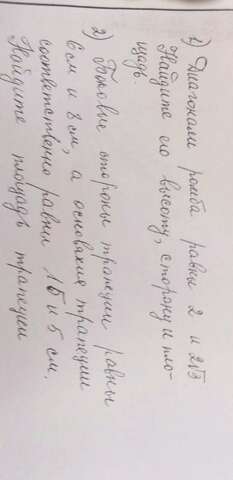 1) Диагонали ромба равны 2 и 2√3
Найдите его высоту, сторону и пло-
щадь.
2) Боковые стороны трапеции равны
6 см и 8 см, а основания трапеции
соответственно равны 15 и 5 см.
Найдите площадь трапеции